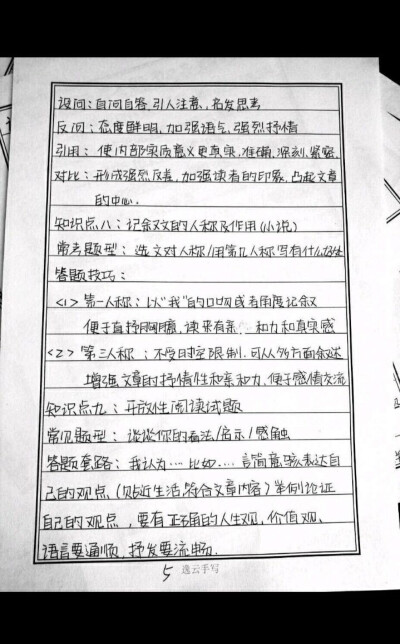 设问：自问自答，引人注意，启发思考
反问：态度鲜明，加强语气，强烈抒情
引用：使内部实质意义更真实、准确、深刻、紧密
对比：形成强烈反差，加强读者的印象，凸起文章
的中心．
知识点八：记叙文的人称及作用（小说）
常考题型：选文对人称/用第几人称写有什么好处
答题技巧：
<1> 第一人称：以“我”的口吻或者角度记叙
便于直抒胸臆，读来有亲和力和真实感
<2> 第三人称：不受时空限制，可从多方面叙述
增强文章的抒情性和亲和力，便于感情交流
知识点九：开放性阅读试题
常见题型：谈谈你的看法/启示/感触
答题套路：我认为……比如……言简意赅表达自
己的观点、（贴近生活，符合文章内容）举例论证
自己的观点，要有正确的人生观，价值观、
语言要通顺，抒发要流畅．
5 逸云手写